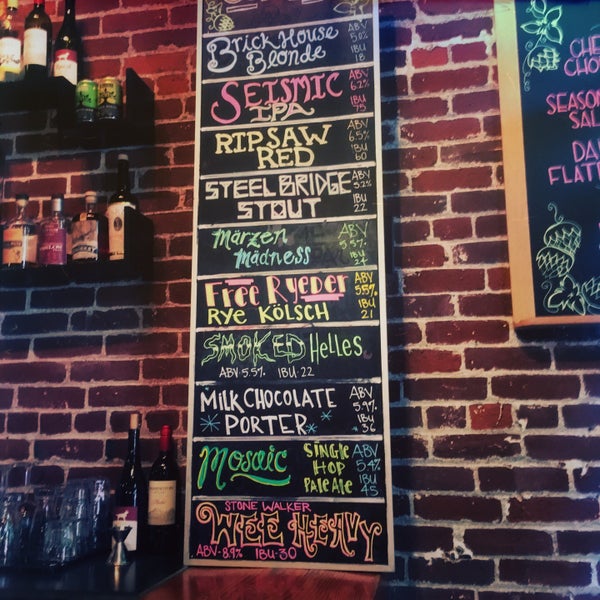 BrickHouse
Blonde
ABV
5.0%
IBU
18
SEISMIC
IPA
ABV
6.2%
IBU
75
RIPSAW
RED
ABV
6.5%
IBU
60
STEEL BRIDGE
STOUT
ABV
5.2%
IBU
22
Märzen
Madness
ABV
5.5%
IBU
24
Free Ryeder
RYE KÖLSCH
ABV
5.5%
IBU
21
SMOKED Helles
ABV · 5.5% IBU · 22
MILK CHOCOLATE
PORTER
ABV
5.9%
IBU
36
Mosaic
SINGLE
HOP
PALE ALE
ABV
5.4%
IBU
45
STONE WALKER
WEE HEAVY
ABV - 8.9% IBU - 30
CHE
CHO
SEASON
SAL
DA
FLAT